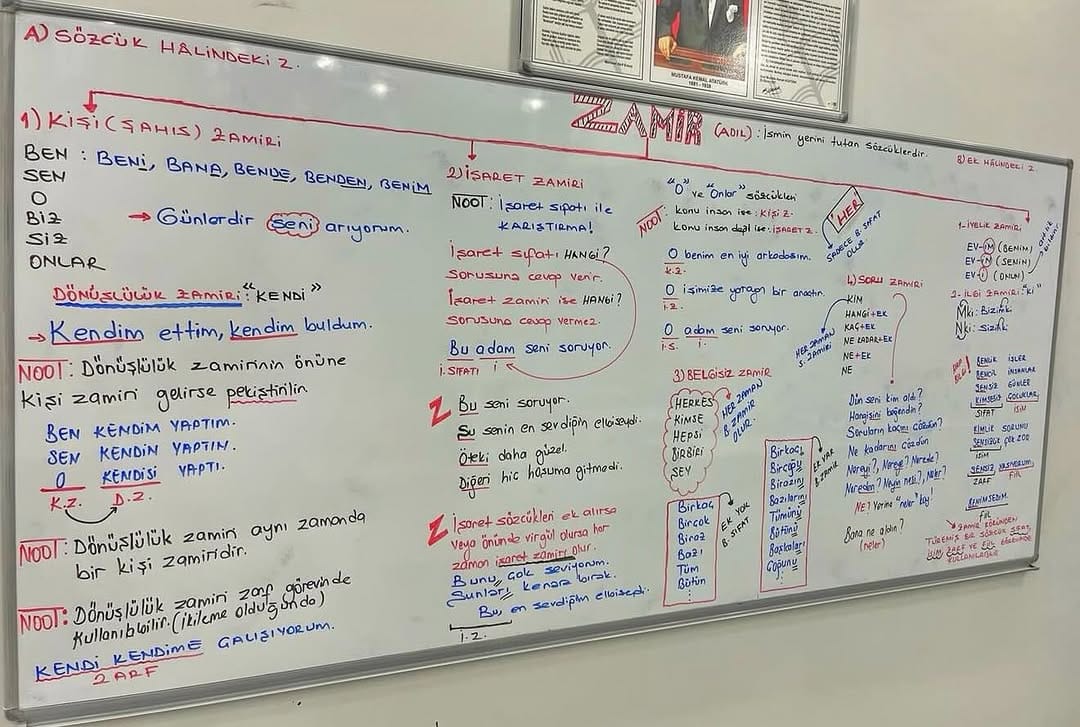 MUSTAFA KEMAL ATATÜRK
1881 - 1938
ZAMİR (ADIL) : İsmin yerini tutan sözcüklerdir.
A) SÖZCÜK HÂLİNDEKİ Z.
1) KİŞİ (ŞAHIS) ZAMİRİ
BEN : BENİ, BANA, BENDE, BENDEN, BENİM
SEN
O
BİZ
SİZ
ONLAR
→ Günlerdir seni arıyorum.
DÖNÜŞLÜLÜK ZAMİRİ: "KENDİ"
→ Kendim ettim, kendim buldum.
NOOT: Dönüşlülük zamirinin önüne
kişi zamiri gelirse pekiştirilir.
BEN KENDİM YAPTIM.
SEN KENDİN YAPTIN.
O KENDİSİ YAPTI.
K.Z. D.Z.
NOOT: Dönüşlülük zamiri aynı zamanda
bir kişi zamiridir.
NOOT: Dönüşlülük zamiri zarf görevinde
kullanılabilir. (ikileme olduğunda)
KENDİ KENDİME ÇALIŞIYORUM.
ZARF
2) İŞARET ZAMİRİ
NOOT: İşaret sıfatı ile
KARIŞTIRMA!
İşaret sıfatı HANGİ?
sorusuna cevap verir.
İşaret zamiri ise HANGİ?
sorusuna cevap vermez.
Bu adam seni soruyor.
İ.SIFATI İ
Z Bu seni soruyor.
Şu senin en sevdiğin elbiseydi.
Öteki daha güzel.
Diğeri hiç hoşuma gitmedi.
Z İşaret sözcükleri ek alırsa
veya önünde virgül olursa her
zaman işaret zamiri olur.
Bunu çok seviyorum.
Şunları kenara bırak.
Bu, en sevdiğim elbiseydi.
İ.Z.
"O" ve "Onlar" sözcükleri
NOOT: konu insan ise: KİŞİ Z.
konu insan değil ise: İŞARET Z.
O benim en iyi arkadaşım.
K.Z.
O işimize yarayan bir araçtır.
İ.Z.
O adam seni soruyor.
İ.S. İ.
3) BELGİSİZ ZAMİR
HERKES
KİMSE
HEPSİ
BİRBİRİ
ŞEY
HER ZAMAN
B. ZAMİR
OLUR.
Birkaç
Birçok
Biraz
Bazı
Tüm
Bütün
EK YOK
B. SIFAT
Birkaçı
Birçoğu
Birazını
Bazılarını
Tümünü
Bütünü
Başkaları
Çoğunu
EK VAR
B. ZAMİR
HER
SADECE B. SIFAT
OLUR
4) SORU ZAMİRİ
KİM
HANGİ+EK
KAÇ+EK
NE KADAR+EK
NE+EK
NE
HER ZAMAN
S. ZAMİRİ
Dün seni kim aldı?
Hangisini beğendin?
Soruların kaçını çözdün?
Ne kadarını çözdün
Nereyi?, Nereye? Nerede?
Nereden? Neyin nesi?, Neler?
NE? Yerine "neler" koy!
Bana ne aldın?
(neler)
B) EK HALİNDEKİ Z.
1- İYELİK ZAMİRİ
EV-İM (BENİM)
EV-İN (SENİN)
EV-İ (ONUN)
2- İLGİ ZAMİRİ: "Kİ"
Mki: Bizimki
Nki: Sizinki
BENLİK İŞLER
BENCİL İNSANLAR
SENSİZ GÜNLER
KİMSESİZ ÇOCUKLAR
SIFAT İSİM
KİMLİK SORUNU
SENSİZLİK ÇOK ZOR
İSİM
SENSİZ YAŞIYORUM.
ZARF FİİL
BENİMSEDİM.
FİİL
ZAMİR KÖKÜNDEN
TÜREMİŞ BİR SÖZCÜK SIFAT,
İSİM, ZARF VE FİİL GÖREVİNDE
KULLANILABİLİR